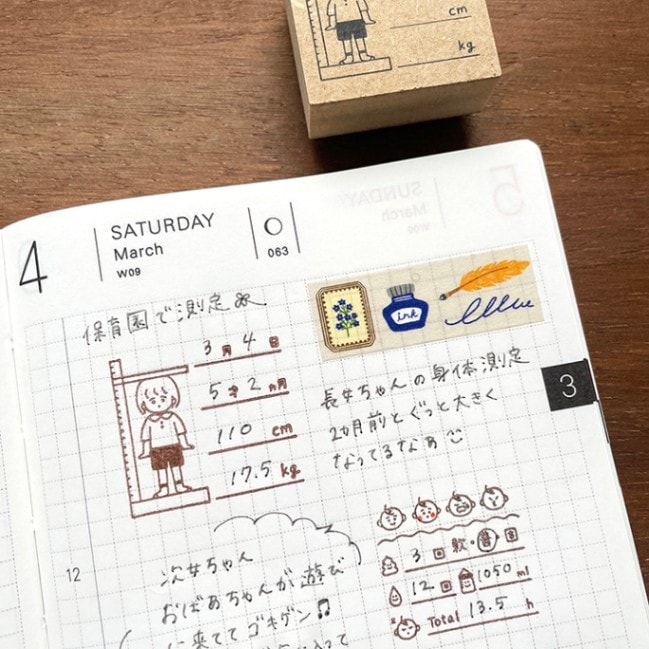 cm
kg
4
SATURDAY
March
W09
063
保育園で測定
3月4日
5才2ヵ月
110 cm
17.5 kg
Ink
長女ちゃんの身体測定
2ヵ月前とぐっと大きく
なってるなぁ
3
12
次女ちゃん
おばあちゃんが遊び
に来ててゴキゲン
3回 軟・普・固
12回 1050 ml
Total 13.5 h
SUNDAY
March
W09
5